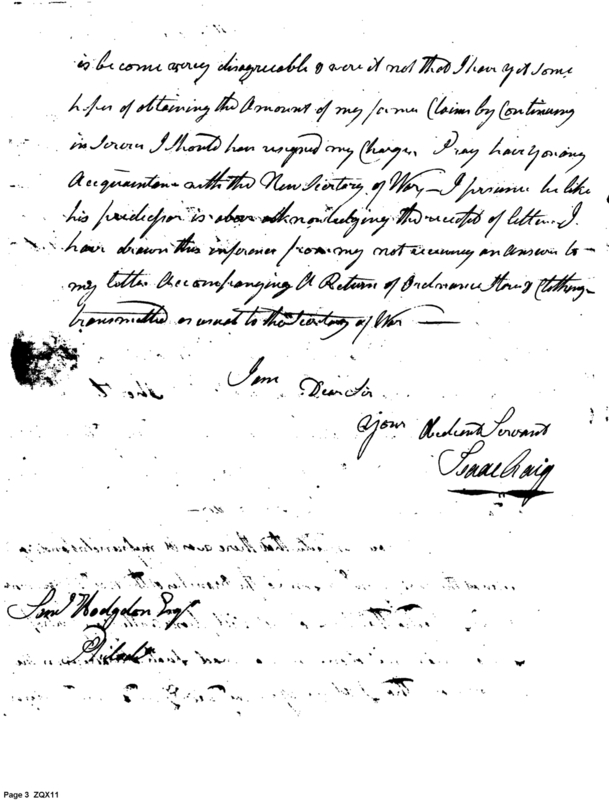 is become verey disagreeable & were it not that I have yet some
hopes of obtaining the Amount of my former Claims by Continuing
in Service I Should have resigned my Charge. Pray have you any
Acequaintance with the New Secretary of War — I presume he like
his predicessor is above acknowledging the receipt of letters. I
have drawn this inference from my not receiving an Answer to
my letter Accompanying A Return of Ordnance Stores & Clothing
transmitted as usual to the Secretary of War —
I am
Dear Sir
Your Obedient Servant
Isaac Craig
Saml Hodgdon Esqr
Philada
Page 3 ZQX11